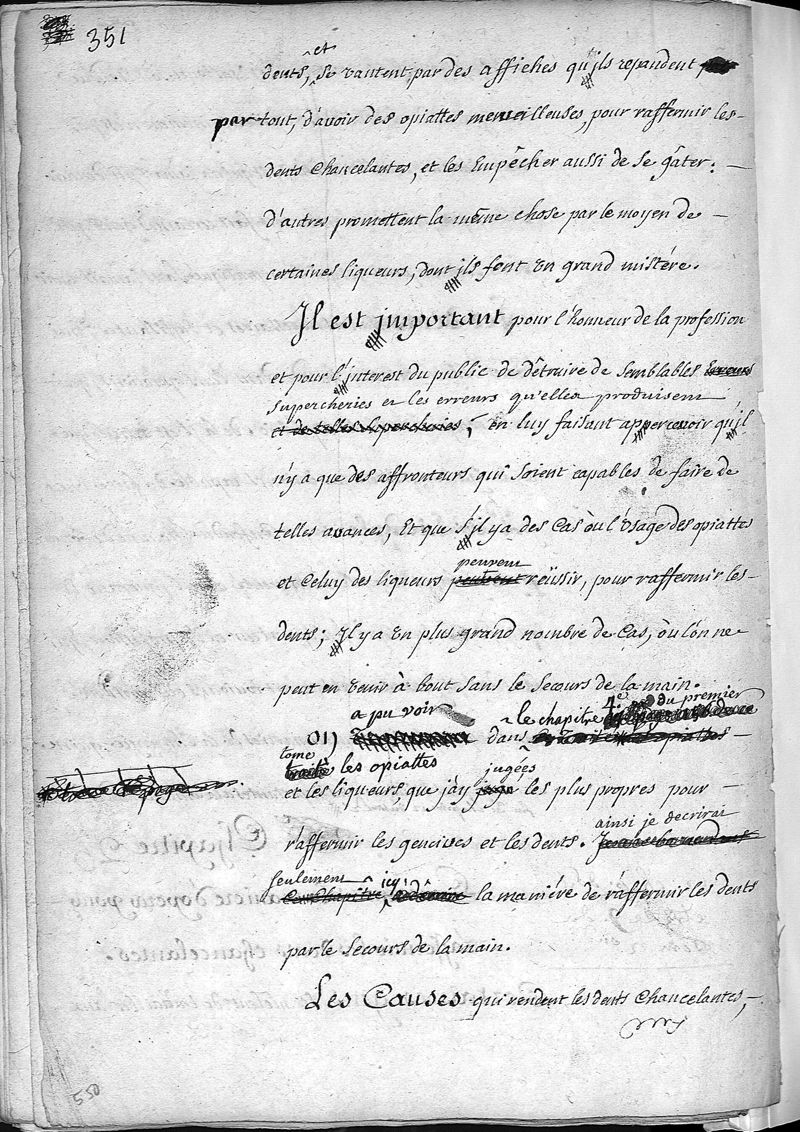 351
dents, et se vantent par des affiches qu'ils repandent
par tout, d'avoir des opiattes merveilleuses, pour raffermir les
dents chancelantes, et les Empêcher aussi de se gâter.
d'autres promettent la même chose par le moyen de
certaines liqueurs, dont ils font un grand mistére.
Il est important pour l'honneur de la profession
et pour l'interest du public de détruire de semblables erreurs
supercheries et les erreurs qu'elles produisent
et de telles supercheries, en luy faisant appercevoir qu'il
n'y a que des affronteurs qui soient capables de faire de
telles avances, Et que s'il y a des Cas où l'Usage des opiattes
peuvent
et Celuy des liqueurs peuvent reüssir, pour raffermir les
dents; Il y a un plus grand nombre de Cas, où l'on ne
peut en venir à bout sans le secours de la main.
a pu voir le chapitre 4.e du premier
on dans
tome traité les opiattes jugées
et les liqueurs, que j'ay juge les plus propres pour
raffermir les gencives et les dents. ainsi je decrirai
seulement icy
Ce Chapitre la maniére de raffermir les dents
par le secours de la main.
Les Causes qui rendent les dents Chancelantes,
550